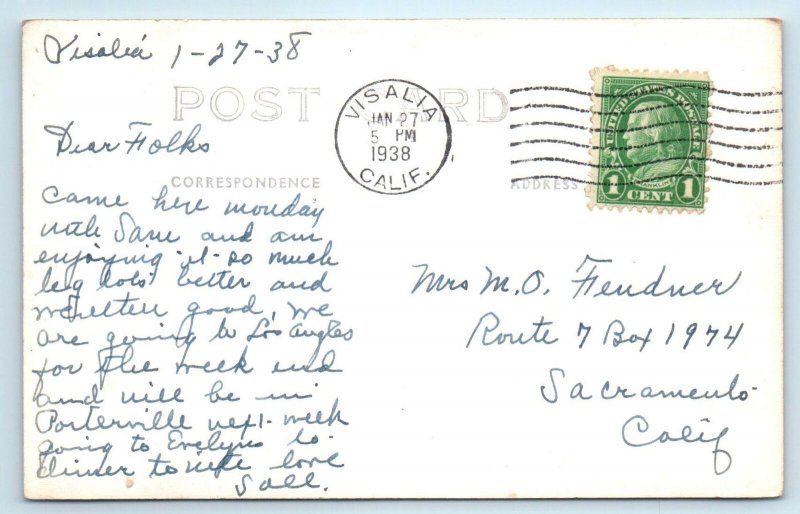 Visalia 1-27-38
POST CARD
VISALIA
JAN 27
5 PM
1938
CALIF.
UNITED STATES POSTAGE
FRANKLIN
1 CENT 1
Dear Folks
CORRESPONDENCE
ADDRESS
Came here monday
with and am
enjoying it so much
leg lots better and
good, we
are going to Los Angles
for the week end
and will be in
Porterville next week
going to Evelyns to
dinner to nite love
Mrs M. O. Fendner
Route 7 Box 1974
Sacramento
Calif